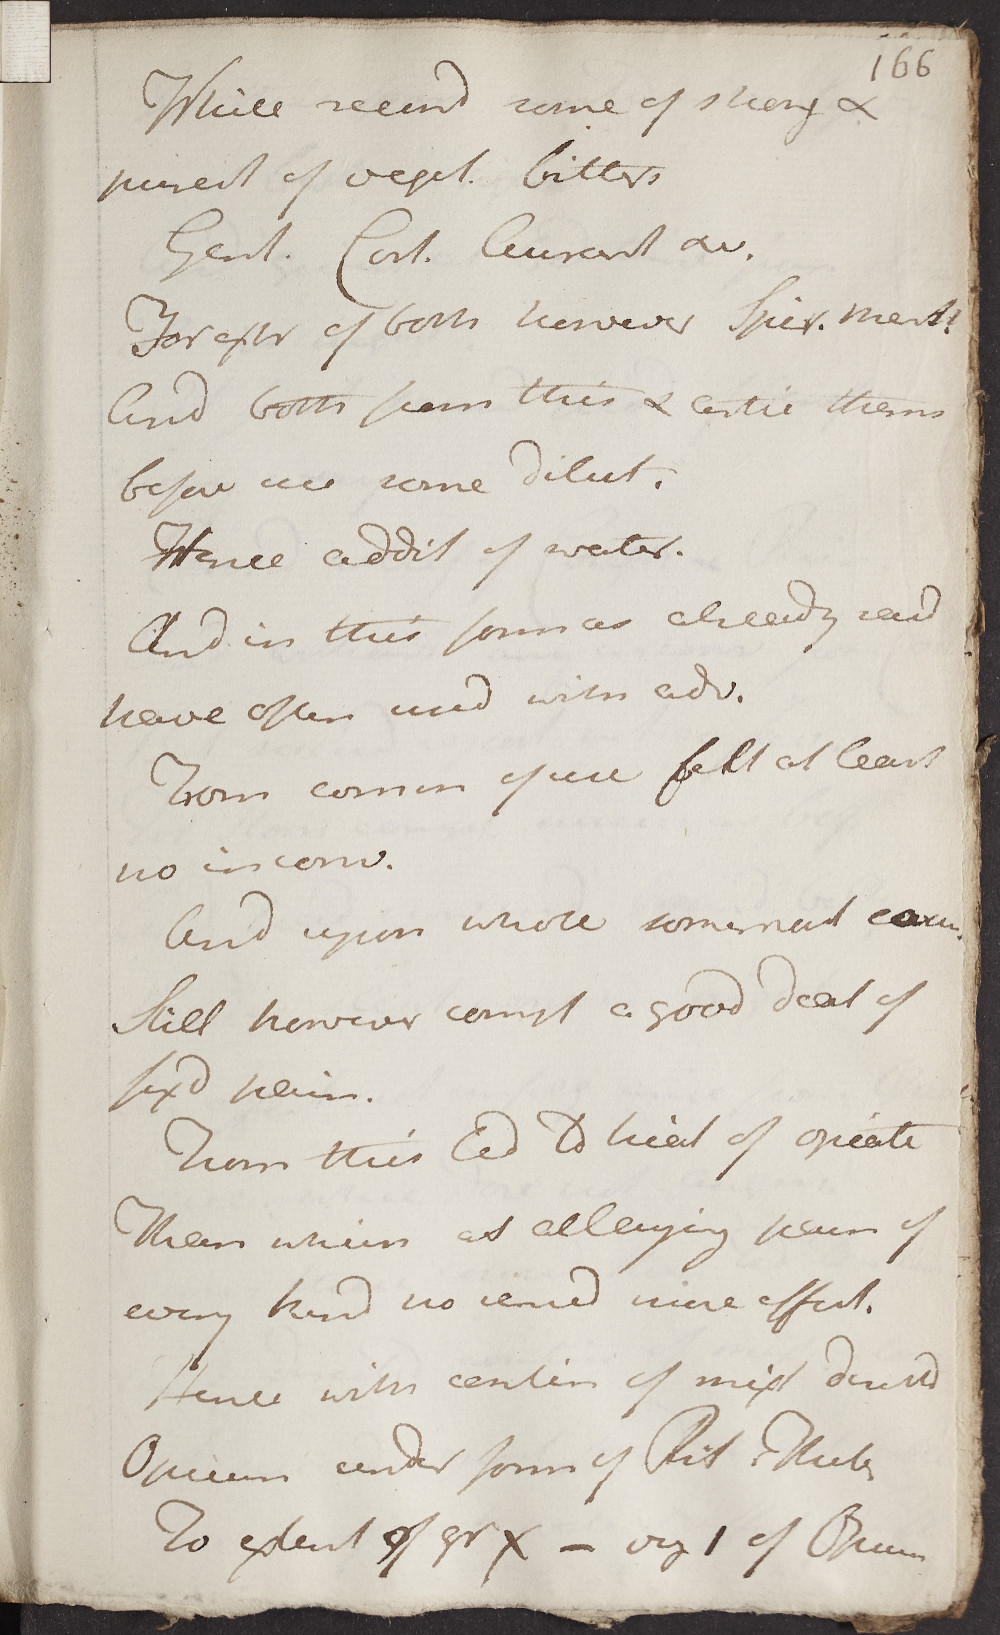 166
While second some of strong &
purest of veget. bitters
Gent. Cort. Aurant &c.
For extr of both however Spir. menst.
And both from this & active thems
before use some dilut.
Hence addit of water.
And in this form as already said
have often used with adv.
From comm of use felt at least
no inconv.
And upon whole somewhat
Still however compt a good deal of
fixd pain.
From this led to trial of opiate
Than which as allaying pain of
every kind no remed more effect.
Hence with contin of mixt directd
Opium under form of Pil Theb
To extent of gr X — viz 1 of Opium